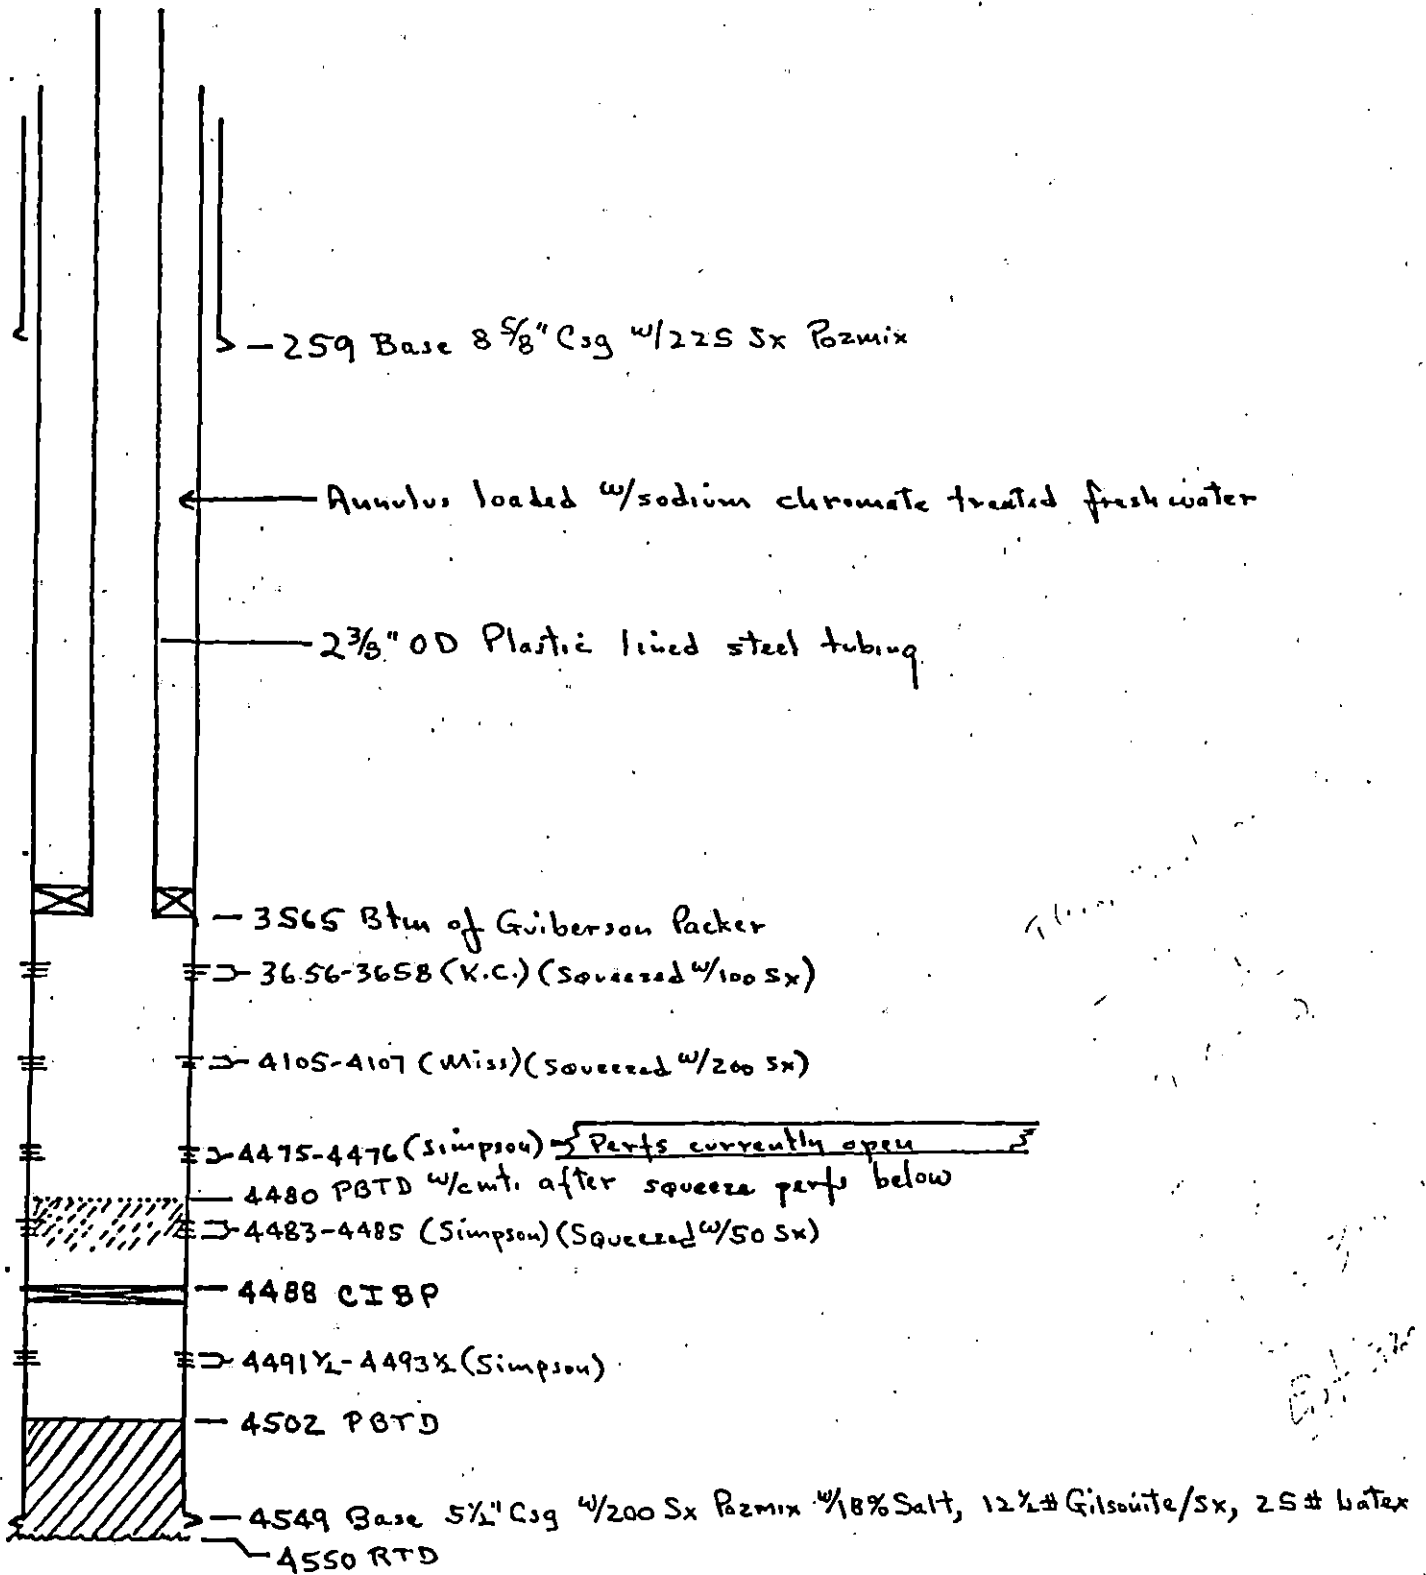 — 259 Base 8 5/8" Csg w/225 Sx Pozmix
Annulus loaded w/sodium chromate treated fresh water
2 3/8" OD Plastic lined steel tubing
— 3565 Btm of Guiberson Packer
3656-3658 (K.C.) (Squeezed w/100 Sx)
4105-4107 (Miss) (Squeezed w/200 Sx)
4475-4476 (Simpson) Perfs currently open
4480 PBTD w/cmt. after squeeze perfs below
4483-4485 (Simpson) (Squeezed w/50 Sx)
— 4488 CIBP
4491½-4493½ (Simpson)
— 4502 PBTD
— 4549 Base 5½" Csg w/200 Sx Pozmix w/18% Salt, 12½# Gilsonite/Sx, 25# Latex
4550 RTD